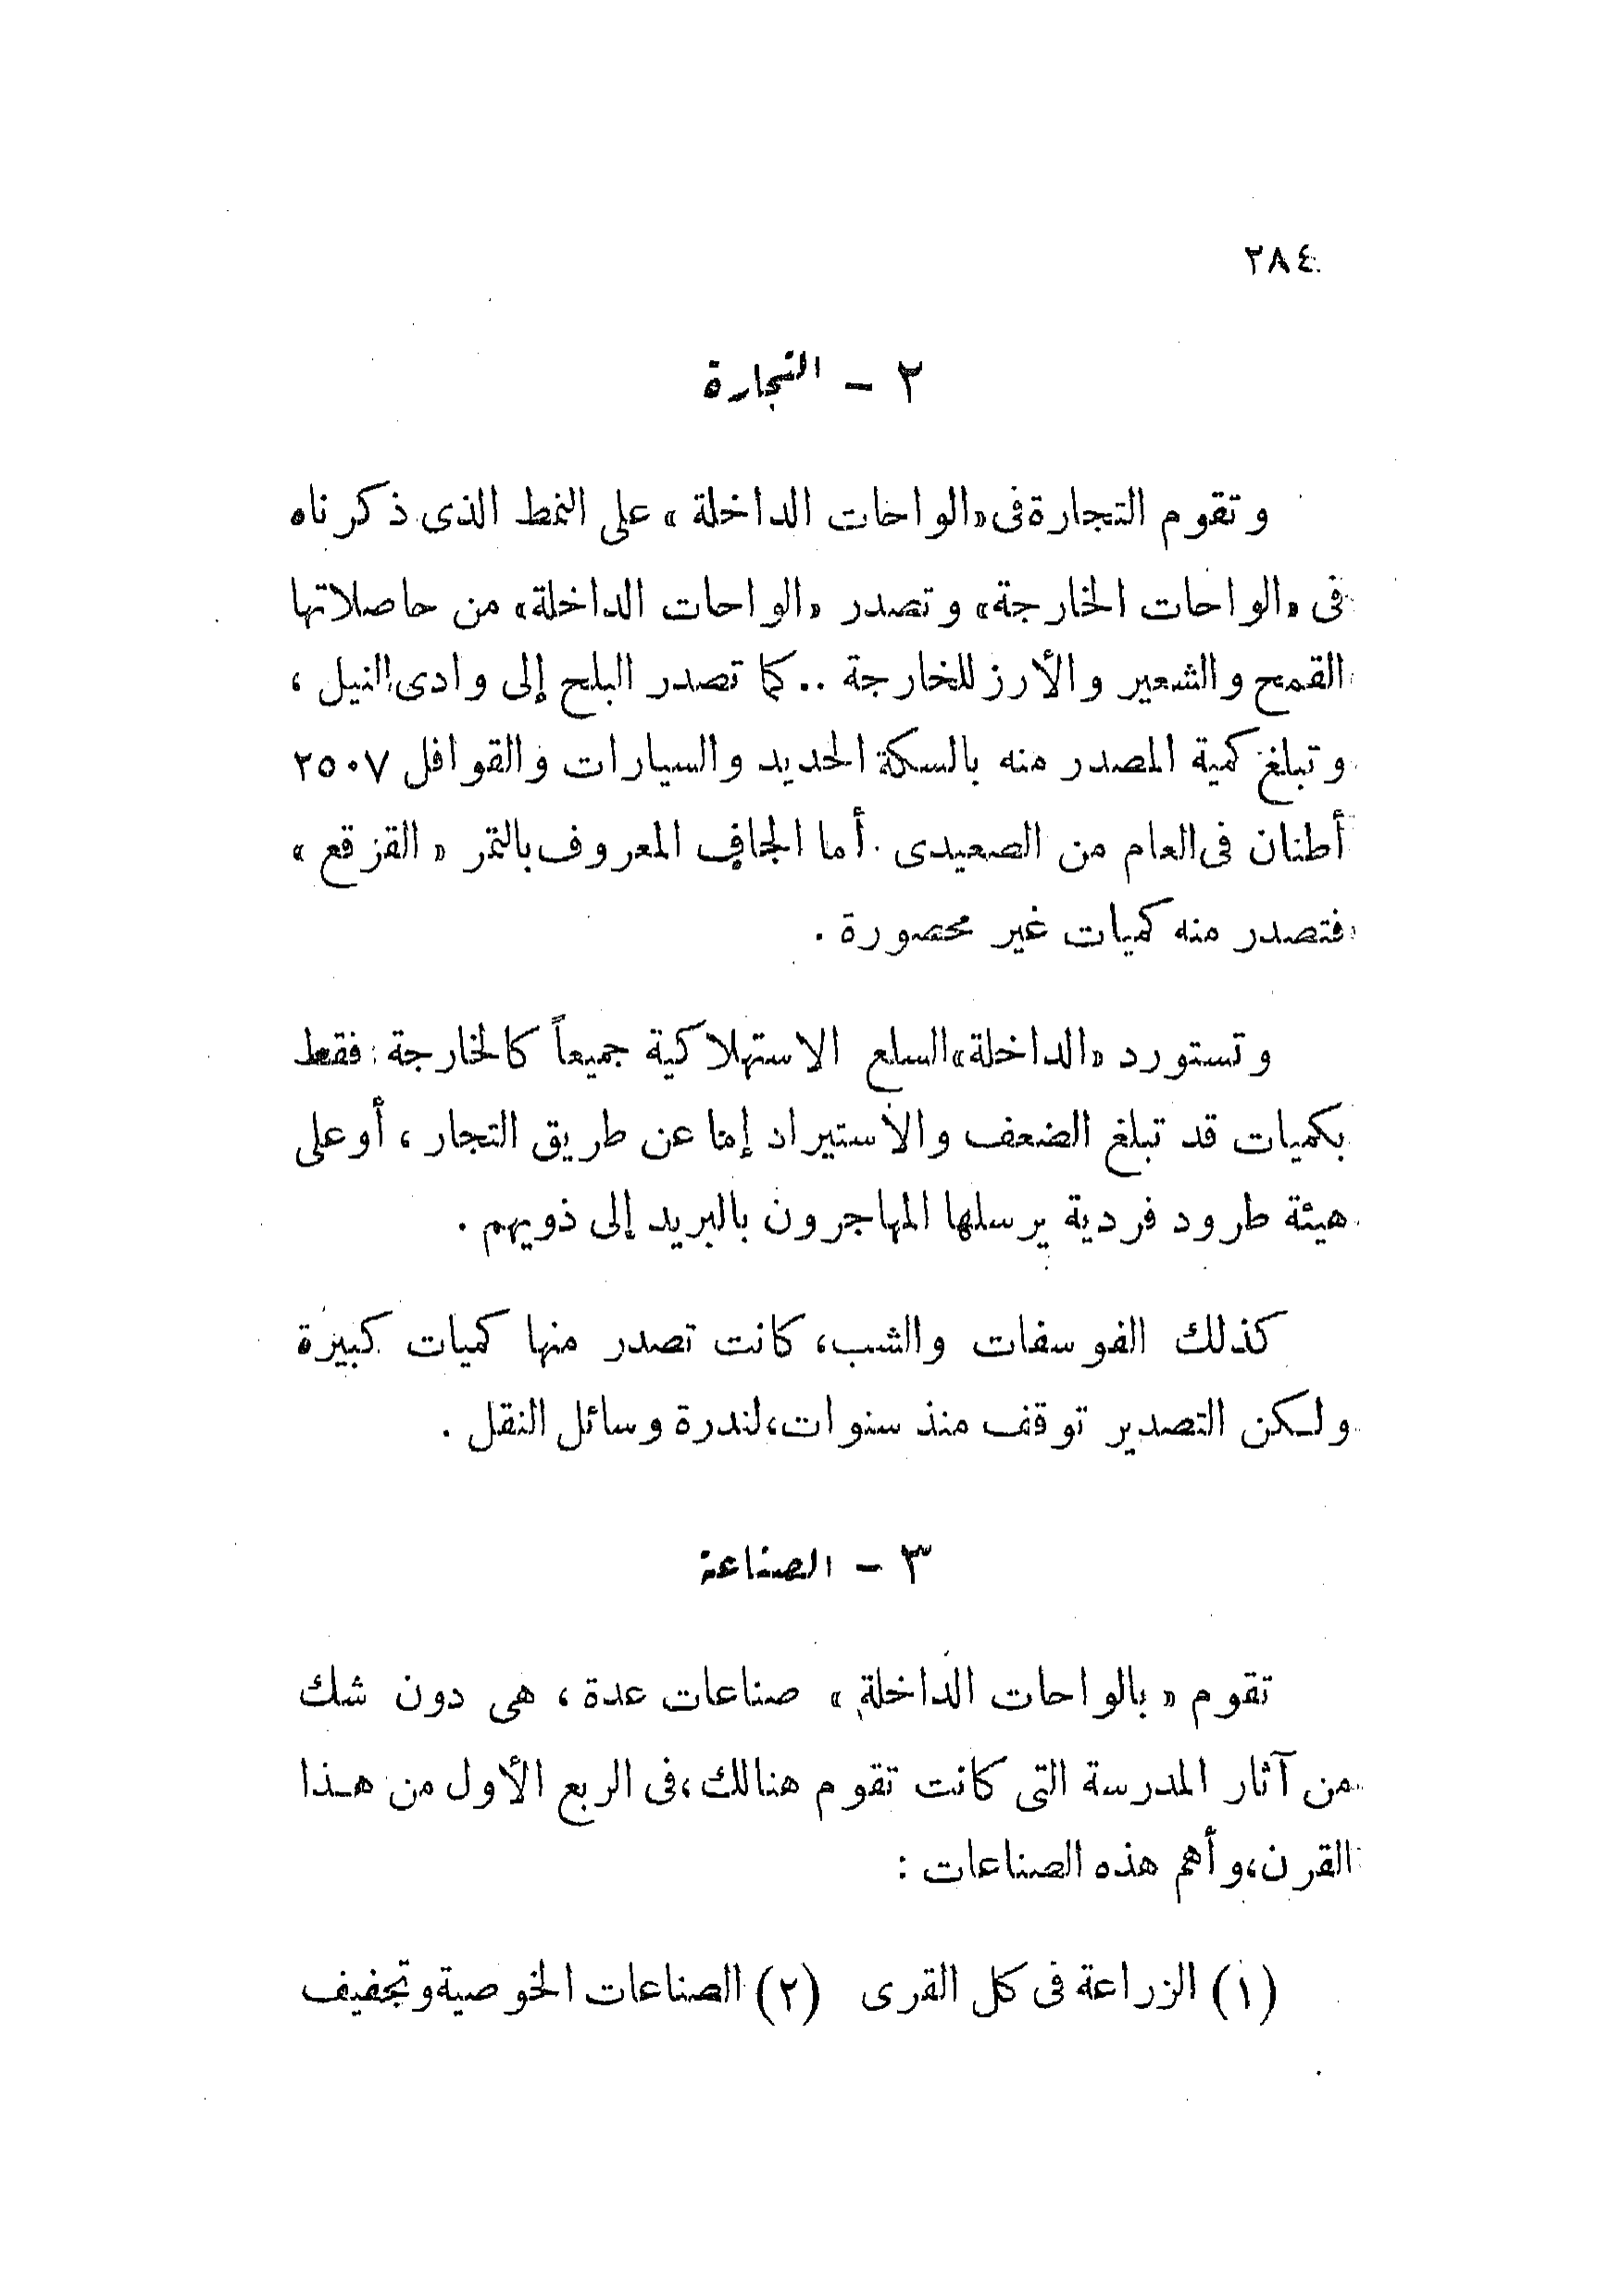 ٢٨٤
٢ - التجارة
وتقوم التجارة فى «الواحات الداخلة» على النمط الذى ذكرناه
فى «الواحات الخارجة» وتصدر «الواحات الداخلة» من حاصلاتها
القمح والشعير والأرز للخارجة .. كما تصدر البلح إلى وادى النيل ،
وتبلغ كمية المصدر منه بالسكة الحديد والسيارات والقوافل ٢٥٠٧
أطنان فى العام من الصعيدى . أما الجاف المعروف بالتمر « القزقع »
فتصدر منه كميات غير محصورة .
وتستورد «الداخلة» السلع الاستهلاكية جميعاً كالخارجة : فقط
بكميات قد تبلغ الضعف والاستيراد إما عن طريق التجار ، أو على
هيئة طرود فردية يرسلها المهاجرون بالبريد إلى ذويهم .
كذلك الفوسفات والشب، كانت تصدر منها كميات كبيرة
ولكن التصدير توقف منذ سنوات، لندرة وسائل النقل .
٣ - الصناعة
تقوم « بالواحات الداخلة » صناعات عدة ، هى دون شك
من آثار المدرسة التى كانت تقوم هنالك، فى الربع الأول من هـذا
القرن، وأهم هذه الصناعات :
(١) الزراعة فى كل القرى (٢) الصناعات الخوصية وتجفيف